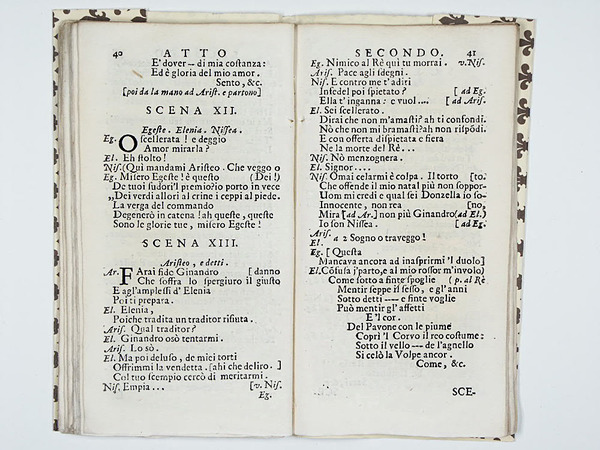 40 ATTO
E' dover – di mia coſtanza:
Ed è gloria del mio amor.
Sento, &c.
[poi da la mano ad Ariſt. e partono]
SCENA XII.
Egeſte. Elenia. Niſſea.
Eg. O Scellerata! e deggio
Amor mirarla?
El. Eh ſtolto!
Niſ. (Qui mandami Ariſteo. Che veggo o
Eg. Miſero Egeſte! è queſto (Dei!)
De tuoi ſudori'l premio? io porto in vece
„Dei verdi allori al crine i ceppi al piede.
La verga del commando
Degenerò in catena! ah queſte, queſte
Sono le glorie tue, miſero Egeſte!
SCENA XIII.
Ariſteo, e detti.
Ar. FArai fide Ginandro [danno
Che ſoffra lo ſpergiuro il giuſto
E agl'ampleſſi d' Elenia
Poi ti prepara.
El. Elenia,
Poiche tradita un traditor rifiuta.
Ariſ. Qual traditor?
El. Ginandro osò tentarmi.
Ariſ. Lo sò.
El. Ma poi deluſo, de miei torti
Offrimmi la vendetta. [ahi che deliro.]
Col tuo ſcempio cercò di meritarmi.
Niſ. Empia... [v. Niſ.
Eg.
SECONDO. 41
Eg. Nimico al Rè qui tu morrai. v. Niſ.
Ariſ. Pace agli ſdegni.
Niſ. E contro me t'aditi
Infedel poi ſpietato? [ad Eg.
Ella t' inganna: e vuol .... [ad Ariſ.
El. Sei ſcellerato.
Dirai che non m'amaſti? ah ti confondi.
Nò che non mi bramaſti? ah non riſpódi.
E con offerta diſpietata e fiera
Ne la morte del Rè...
Niſ. Nò menzognera.
El. Signor....
Niſ. Omai celarmi è colpa. Il torto [to.
Che offende il mio natal più non ſoppor-
Uom mi credi e qual ſei Donzella io ſo-
Innocente, non rea [no,
Mira [ad Ar.] non più Ginandro (ad El.)
Io ſon Niſſea. [ad Eg.
Ariſ.
El. a 2 Sogno o traveggo!
Eg. [Queſta
Mancava ancora ad inaſprirmi 'l duolo]
El. Cóſuſa j'parto, e al mio roſſor m'involo)
Come ſotto a finte ſpoglie (p. al Rè
Mentir ſeppe il ſeſſo, e gl' anni
Sotto detti ---- e finte voglie
Può mentir gl' affetti
E 'l cor.
Del Pavone con le piume
Coprì 'l Corvo il reo coſtume:
Sotto il vello --- de l'agnello
Si celò la Volpe ancor.
Come, &c.
SCE-